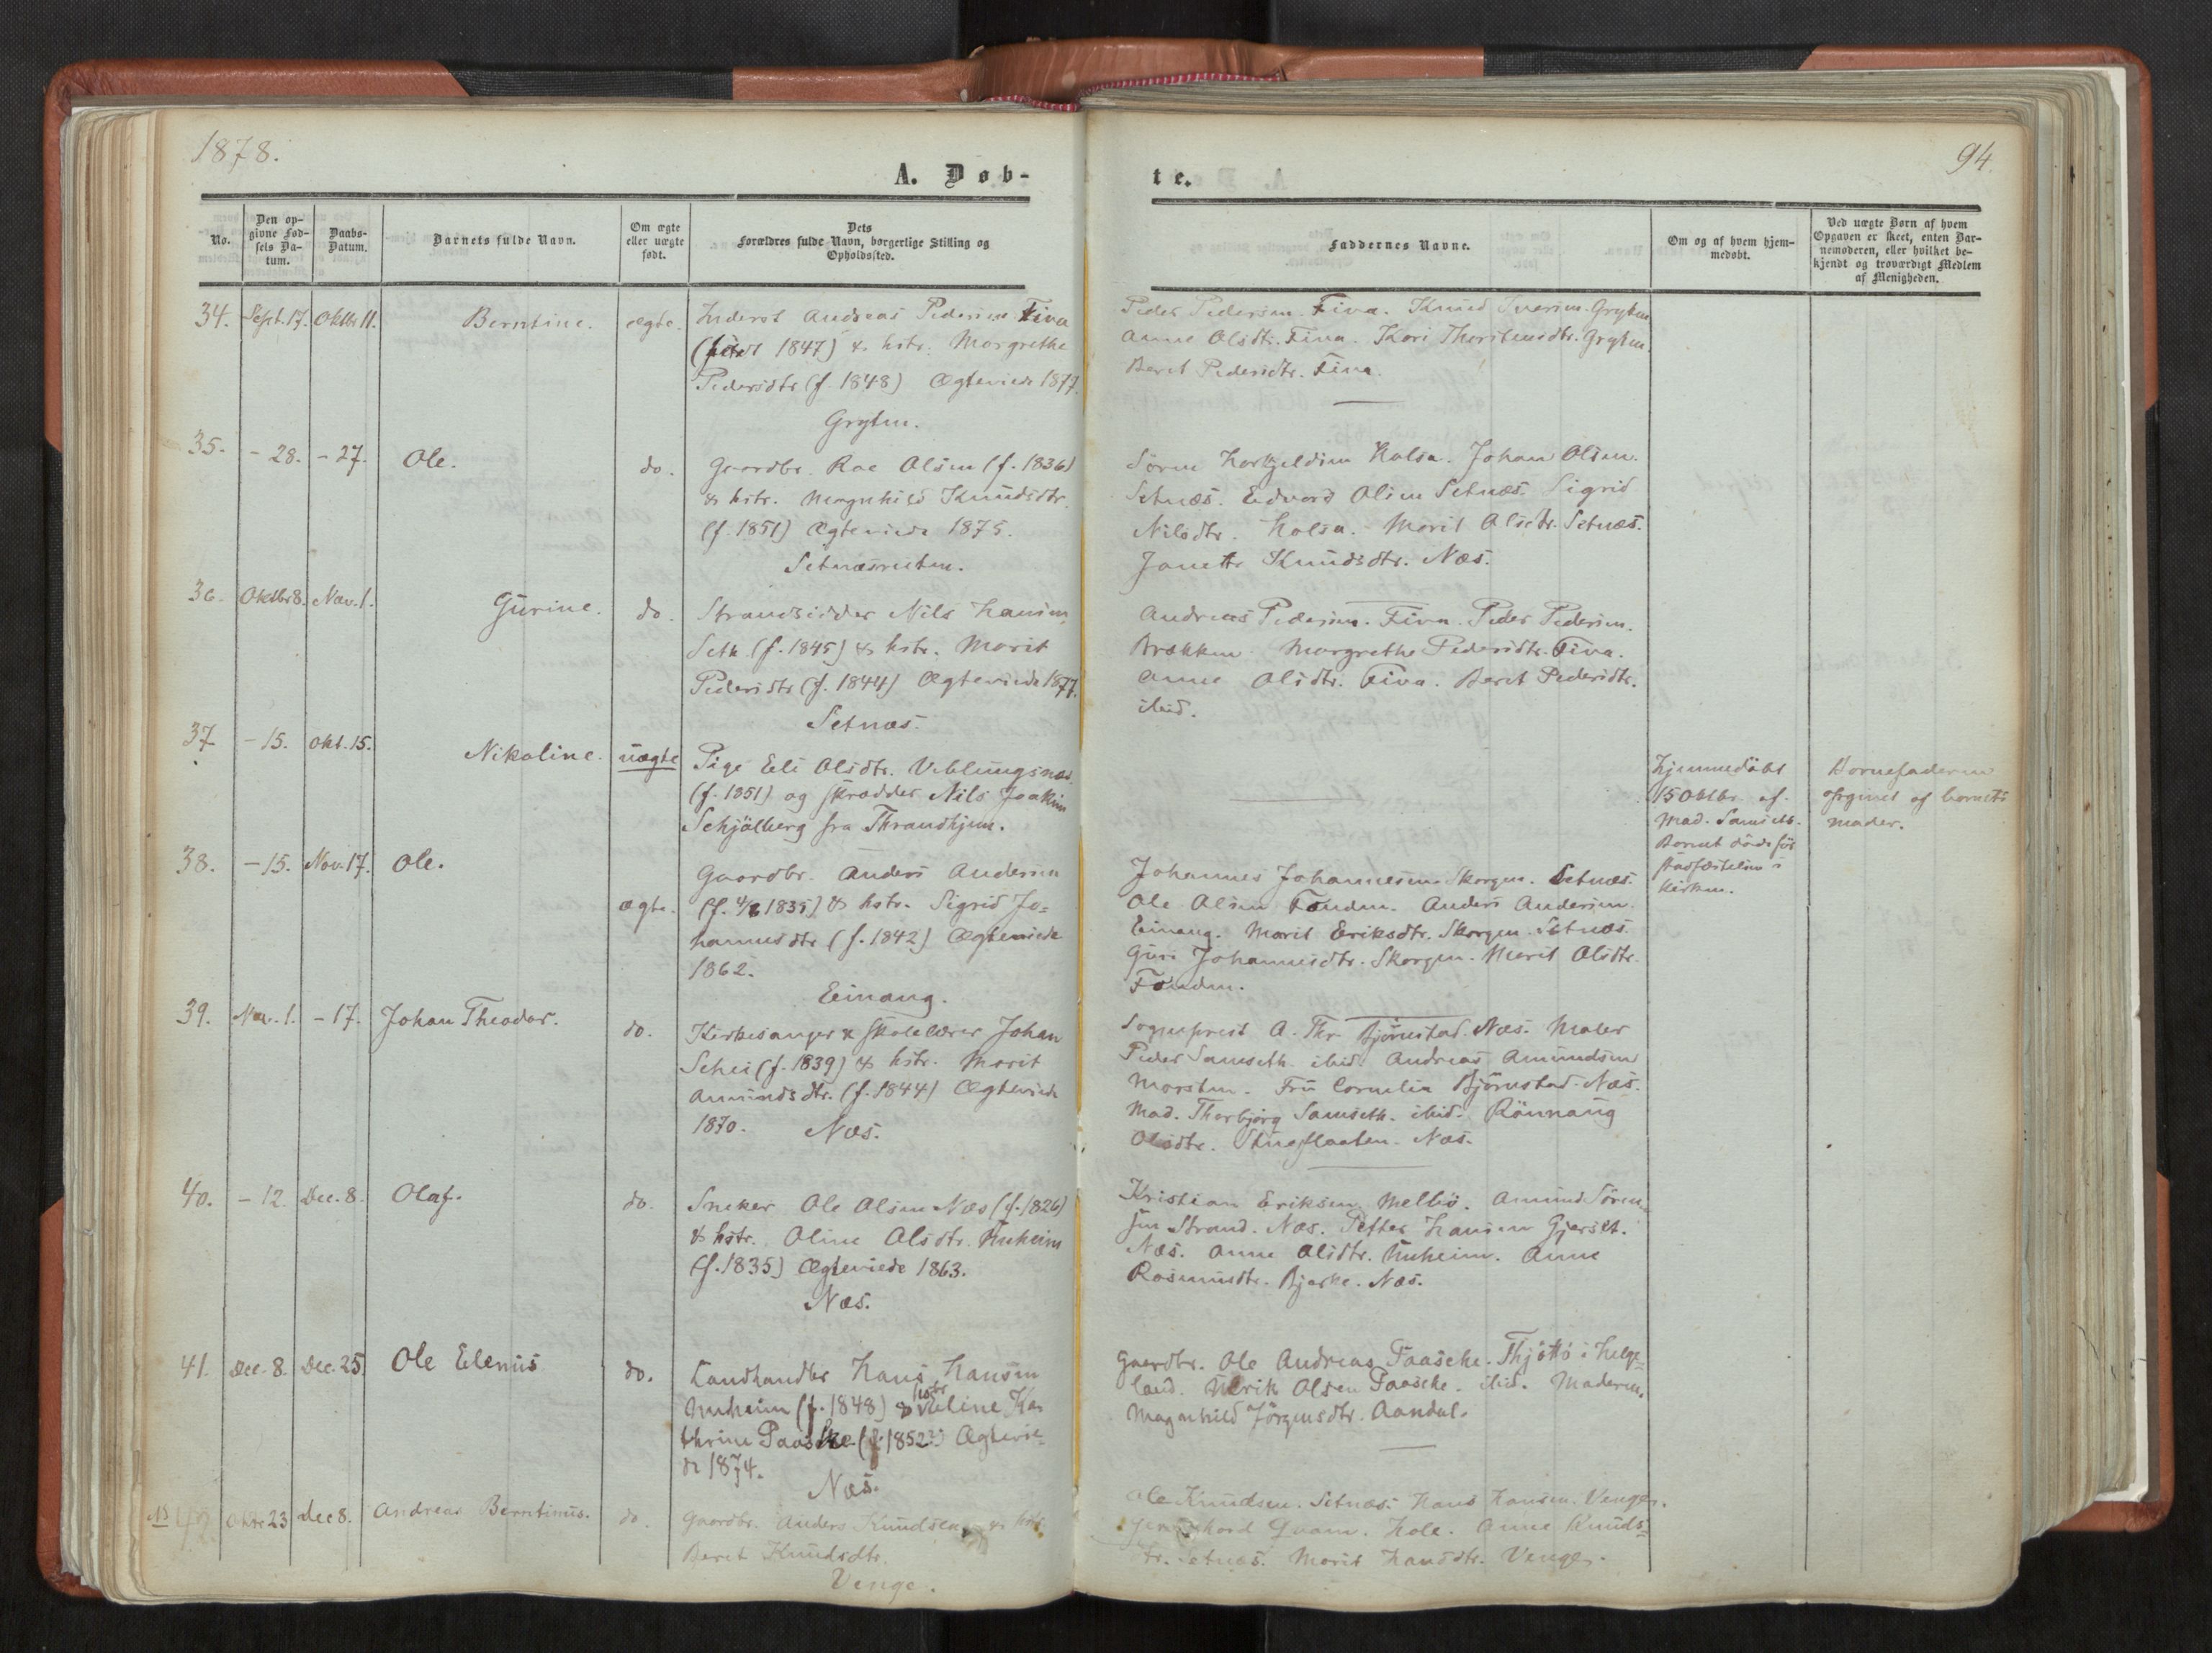 1878.
94.
A. Døb-
te.
No.
Den op-
givne Fød-
sels Da-
tum.
Daabs-
Datum.
Barnets fulde Navn.
Om ægte
eller uægte
født.
Dets
Forældres fulde Navn, borgerlige Stilling og
Opholdssted.
Faddernes Navne.
Om og af hvem hjem-
medøbt.
Ved uægte Børn af hvem
Opgaven er skeet, enten Bar-
nemoderen, eller hvilket be-
kjendt og troværdigt Medlem
af Menigheden.
34. Sept. 17. Oktbr 11. Berntine. ægte. Inderst Andreas Pedersen Fiva
(født 1847) & hstr. Margrethe
Pedersdtr (f. 1848) Ægteviede 1877.
Gryten.
Peder Pedersen. Fiva. Knud Iversen. Gryten
Anne Olsdtr. Fiva. Kari Thorstensdtr. Gryten.
Beret Pedersdtr. Fiva.
35. - 28. - 27. Ole. do. Gaardbr. Roe Olsen (f. 1836)
& hstr. Magnhild Knudsdtr.
(f. 1851) Ægteviede 1875.
Setnæsreiten.
Sören Holsa. Johan Olsen.
Setnæs. Edvard Olsen Setnæs. Sigrid
Nilsdtr. Holsa. Marit Olsdtr. Setnæs.
Janette Knudsdtr. Næs.
36. Oktbr 8. Nov. 1. Gurine. do. Strandsidder Nils Hansen
Seth (f. 1845) & hstr. Marit
Pedersdtr (f. 1844) Ægteviede 1877.
Setnæs.
Andreas Pedersen. Fiva. Peder Pedersen.
Brækken. Margrethe Pedersdtr. Fiva.
Anne Olsdtr. Fiva. Beret Pedersdtr.
ibid.
37. - 15. Okt. 15. Nikoline. uægte Pige Eli Olsdtr. Veblungsnæs
(f. 1851) og skrædder Nils Joakim
Schjölberg fra Throndhjem.
Hjemmedöbt
15 Oktbr. af
Mad. Samseth.
Barnet döde för
stadfæstelsen i
kirken.
Barnefaderen
opgivet af barnets
moder.
38. - 15. Nov. 17. Ole. ægte. Gaardbr. Anders Andersen
(f. 1835) & hstr. Sigrid Jo=
hannesdtr (f. 1842) Ægteviede
1862.
Einang.
Johannes Johannesen Skorgen. Setnæs.
Ole Olsen Fonden. Anders Andersen
Einang. Marit Eriksdtr. Skorgen. Setnæs
Guri Johannesdtr. Skorgen. Marit Olsdtr.
Fonden.
39. Nov. 1. - 17. Johan Theodor. do. Kirkesanger & skolelærer Johan
Schei (f. 1839) & hstr. Marit
Amundsdtr. (f. 1844) Ægteviede
1870. Næs.
Sogneprest A. Thr. Björnstad. Næs. Maler
Peder Samseth. ibid. Andreas Amundsen
Morsten. Fru Cornelia Björnstad. Næs.
Mad. Thorbjörg Samseth. ibid. Rönnaug
Olsdtr. Stueflaaten. Næs.
40. - 12. Dec. 8. Olaf. do. Sneker Ole Olsen Næs (f. 1826)
& hstr. Oline Olsdtr. Unheim
(f. 1835) Ægteviede 1863.
Næs.
Kristian Eriksen Melbö. Amund Sören-
sen Strand. Næs. Petter Hansen Gjerset.
Næs. Anne Olsdtr. Unheim. Anne
Rasmusdtr. Bjerke. Næs.
41. Dec. 8. Dec. 25. Ole Elenius do. Landhandler Hans Hansen
Unheim (f. 1848) & hstr Veline Ka
thrine Paaske (f. 1852?) Ægtevie=
de 1874.
Næs.
Gaardbr. Ole Andreas Paasche. Thjöttö i Helge=
land. Ulrik Olsen Paasche. ibid. Moderen.
Magnhild Jörgensdtr. Aandal.
42. Oktbr 23 Dec 8. Andreas Berntinus. do. Gaardbr. Anders Knudsen & hstr.
Beret Knudsdtr.
Venge.
Ole Knudsen. Setnæs. Hans Hansen. Venge.
Qvam. Hole. Anne Knuds=
tr. Setnæs. Marit Hansdtr. Venge.